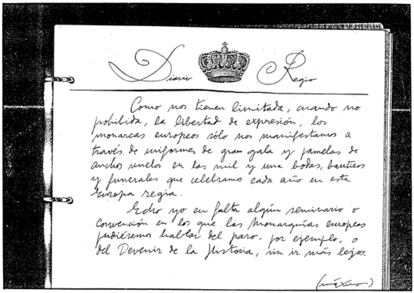 Diario Regio
Como nos tienen limitada, cuando no
prohibida, la libertad de expresión, los
monarcas europeos sólo nos manifestamos a
través de uniformes de gran gala y pamelas de
ancho vuelo en las mil y una bodas, bautizos
y funerales que celebramos cada año en esta
Europa regia.
Echo yo en falta algún seminario o
convención en los que las Monarquías europeas
pudiéramos hablar del paro, por ejemplo, o
del Devenir de la Historia, sin ir más lejos.
(máximo)